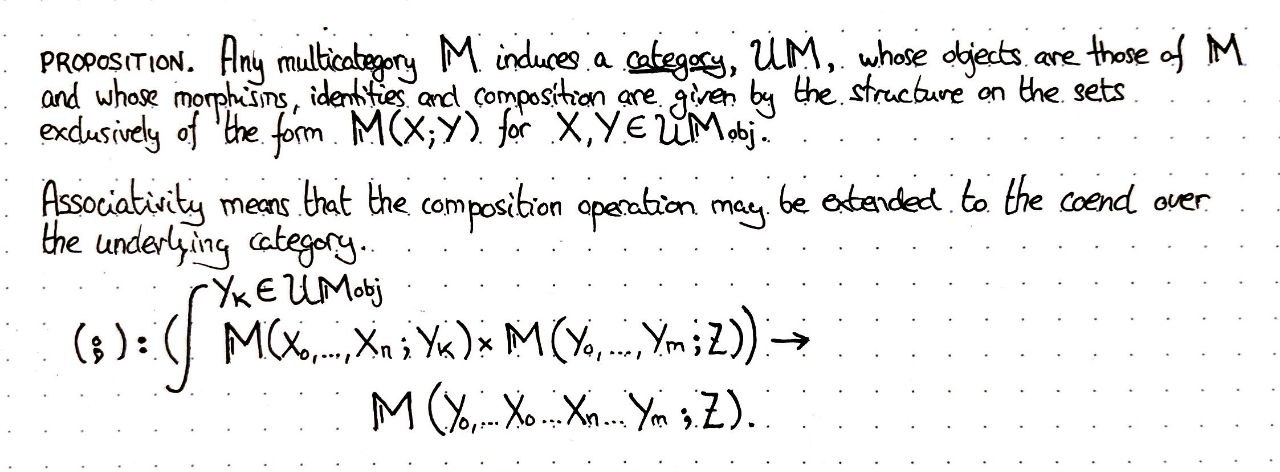 PROPOSITION. Any multicategory 𝕄 induces a category, 𝒰𝕄, whose objects are those of 𝕄
and whose morphisms, identities and composition are given by the structure on the sets
exclusively of the form 𝕄(X;Y) for X,Y ∈ 𝒰𝕄obj.
Associativity means that the composition operation may be extended to the coend over
the underlying category.
(⨾): (∫^{Yₖ ∈ 𝒰𝕄obj} 𝕄(X₀,...,Xₙ; Yₖ) × 𝕄(Y₀,...,Yₘ; Z)) →
𝕄(Y₀,...X₀...Xₙ...Yₘ; Z).